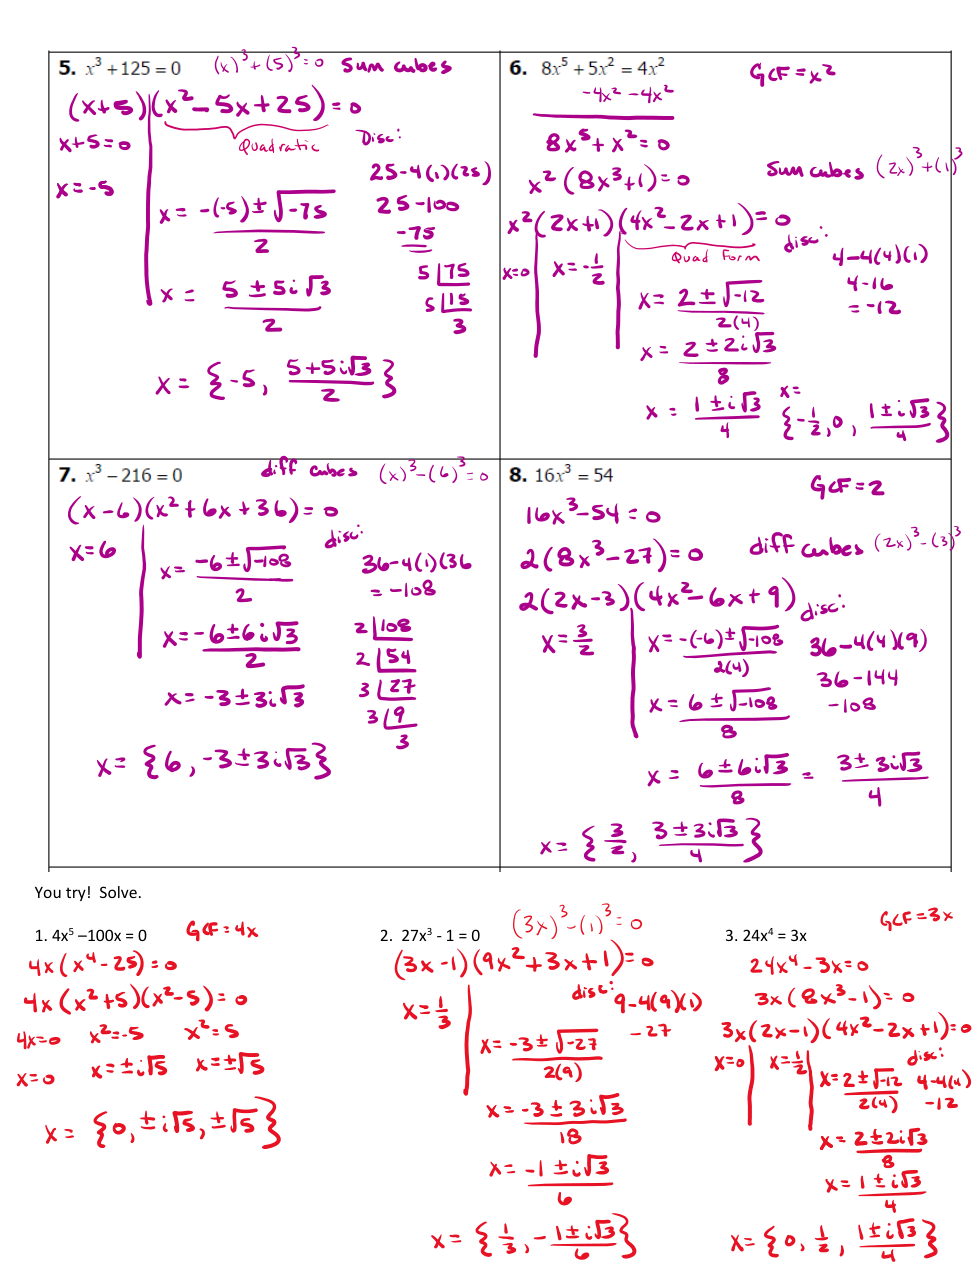 5. x³ + 125 = 0 (x)³ + (5)³ = 0 Sum cubes
(x+5)(x² – 5x + 25) = 0
x+5 = 0
Quadratic
Disc:
x = -5
25 - 4(1)(25)
x = -(-5) ± √-75 / 2
25 - 100
-75
5 | 75
x = 5 ± 5i√3 / 2
5 | 15
3
x = {-5, 5+5i√3 / 2}
6. 8x⁵ + 5x² = 4x² GCF = x²
-4x² -4x²
8x⁵ + x² = 0
x²(8x³+1) = 0
Sum cubes (2x)³ + (1)³
x²(2x+1)(4x² - 2x + 1) = 0
disc:
Quad Form
x=0
x = -1/2
4 - 4(4)(1)
4 - 16
= -12
x = 2 ± √-12 / 2(4)
x = 2 ± 2i√3 / 8
x = 1 ± i√3 / 4
x =
{-1/2, 0, 1 ± i√3 / 4}
7. x³ – 216 = 0 diff cubes (x)³ - (6)³ = 0
(x - 6)(x² + 6x + 36) = 0
x = 6
disc:
x = -6 ± √-108 / 2
36 - 4(1)(36
= -108
x = -6 ± 6i√3 / 2
2 | 108
2 | 54
x = -3 ± 3i√3
3 | 27
3 | 9
3
x = {6, -3 ± 3i√3}
8. 16x³ = 54 GCF = 2
16x³ - 54 = 0
2(8x³ - 27) = 0 diff cubes (2x)³ - (3)³
2(2x - 3)(4x² - 6x + 9)
disc:
x = 3/2
x = -(-6) ± √-108 / 2(4)
36 - 4(4)(9)
36 - 144
-108
x = 6 ± √-108 / 8
x = 6 ± 6i√3 / 8 = 3 ± 3i√3 / 4
x = {3/2, 3 ± 3i√3 / 4}
You try! Solve.
1. 4x⁵ –100x = 0 GCF = 4x
4x(x⁴ - 25) = 0
4x(x² + 5)(x² - 5) = 0
4x = 0 x² = -5 x² = 5
x = 0 x = ± i√5 x = ± √5
x = {0, ± i√5, ± √5}
2. 27x³ - 1 = 0 (3x)³ - (1)³ = 0
(3x - 1)(9x² + 3x + 1) = 0
x = 1/3
disc:
9 - 4(9)(1)
-27
x = -3 ± √-27 / 2(9)
x = -3 ± 3i√3 / 18
x = -1 ± i√3 / 6
x = {1/3, - 1 ± i√3 / 6}
3. 24x⁴ = 3x GCF = 3x
24x⁴ - 3x = 0
3x(8x³ - 1) = 0
3x(2x - 1)(4x² - 2x + 1) = 0
x = 0
x = 1/2
disc:
x = 2 ± √-12 / 2(4)
4 - 4(4)
-12
x = 2 ± 2i√3 / 8
x = 1 ± i√3 / 4
x = {0, 1/2, 1 ± i√3 / 4}